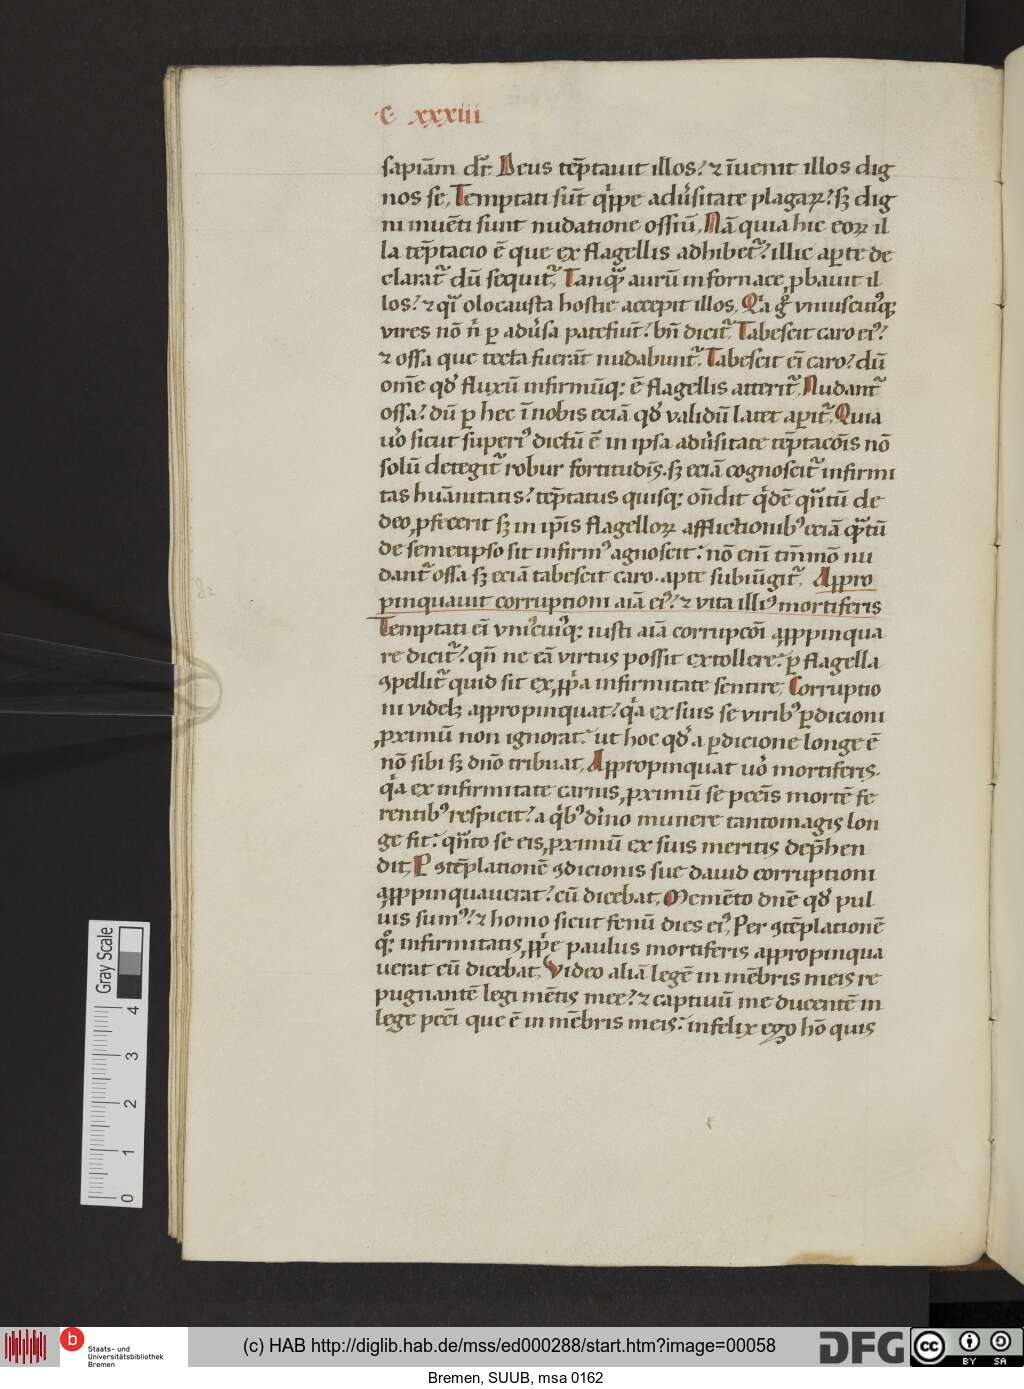 C xxxiii
sapiā̄m dr̄. Deus tēptauit illos? ⁊ īuenit illos dig
nos se, Temptati sūt qͥppe adūsitate plagaꝝ? sꝫ dig
ni inuēti sunt nudatione ossiū, Nā quia hic eoꝝ il
la tēptacio ē que ex flagellis adhibet᷑? illic aꝑte de
clarat᷑ dū sequit᷑, Tanqͣ aurū in fornace ꝓbauit il
los? ⁊ qī olocausta hostie accepit illos, Qͥa gͦ vniuscuiꝰqꝫ
vires nō n̄ ꝑ adūsa patefiūt? bn̄ dicit᷑, Tabescit caro eiꝰ?
⁊ ossa que tecta fuerāt nudabunt᷑, Tabescit ei̅ caro? dū
om̄e qd̕ fluxū infirmūqꝫ ē flagellis atterit᷑, Nudant᷑
ossa? dū ꝑ hec ī nobis eciā qd̕ validū latet aꝑit᷑, Quia
uͦo sicut superiꝰ dictū ē in ipsa adūsitate tēptacōis nō
solū detegit᷑ robur fortitudīs. sꝫ eciā cognoscit᷑ infirmi
tas hūanitatis? tēptatus quisqꝫ on̄dit qͥdē qn̄tū de
deo ꝓfecerit sꝫ in ip̄is flagelloꝝ afflictionibꝰ eciā qͣtū
de semetipso sit infirmꝰ agnoscit: nō eni̅ tm̄mō nu
dant᷑ ossa sꝫ eciā tabescit caro. apte subiūgit᷑, Appro
pinquauit corruptioni aīa eiꝰ? ⁊ vita illiꝰ mortiferis
Temptati ei̅ vniꝰcuiꝰqꝫ iusti aīa corrupcōi aꝓpinqua
re dicit᷑? qn̄ ne eā virtus possit extollere: ꝑ flagella
ꝯpellit᷑ quid sit ex ꝓpͥa infirmitate sentire, Corruptio
ni videlꝫ appropinquat? qͥa ex suis se viribꝰ ꝑdicioni
ꝓximū non ignorat: ut hoc qd̕ a ꝑdicione longe ē
nō sibi sꝫ dn̄o tribuat, Appropinquat uͦo mortiferis.
qͥa ex infirmitate carnis ꝓximū se pcc̄is mortē fe
rentibꝰ respicit? a qͥbꝰ diͥno munere tantomagis lon
ge fit: qn̄to se eis ꝓximū ex suis meritis dep̄hen
dit, P ꝯtēplationē ꝯdicionis sue dauid corruptioni
aꝓpinquauerat? cū dicebat, Memēto dn̄e qd̕ pul
uis sumꝰ? ⁊ homo sicut fenū dies eiꝰ, Per ꝯtēplationē
qͦꝫ infirmitatis ꝓpͥe paulus mortiferis appropinqua
uerat cū dicebat, Video aliā legē in mēbris meis re
pugnantē legi mētis mee? ⁊ captiuū me ducentē in
lege pcc̄i que ē in mēbris meis: infelix ego hō quis
Gray Scale
4
3
2
1
0
b Staats- und
Universitätsbibliothek
Bremen
(c) HAB http://diglib.hab.de/mss/ed000288/start.htm?image=00058
DFG
cc BY SA
Bremen, SUUB, msa 0162